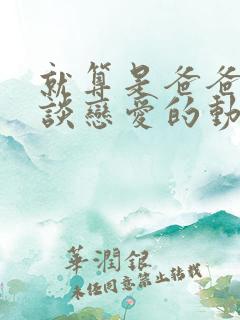 就算是爸爸
談戀愛的動
華潤銀
未经同意禁止转载